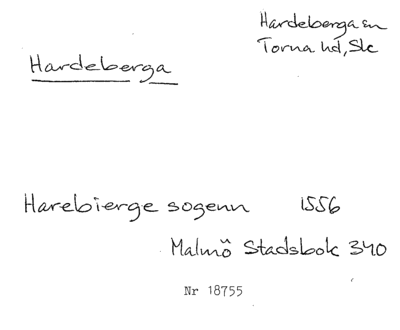 Hardeberga sn
Torna hd, Skc
Hardeberga
Harebierge sogenn 1556
Malmö Stadsbok 340
Nr 18755